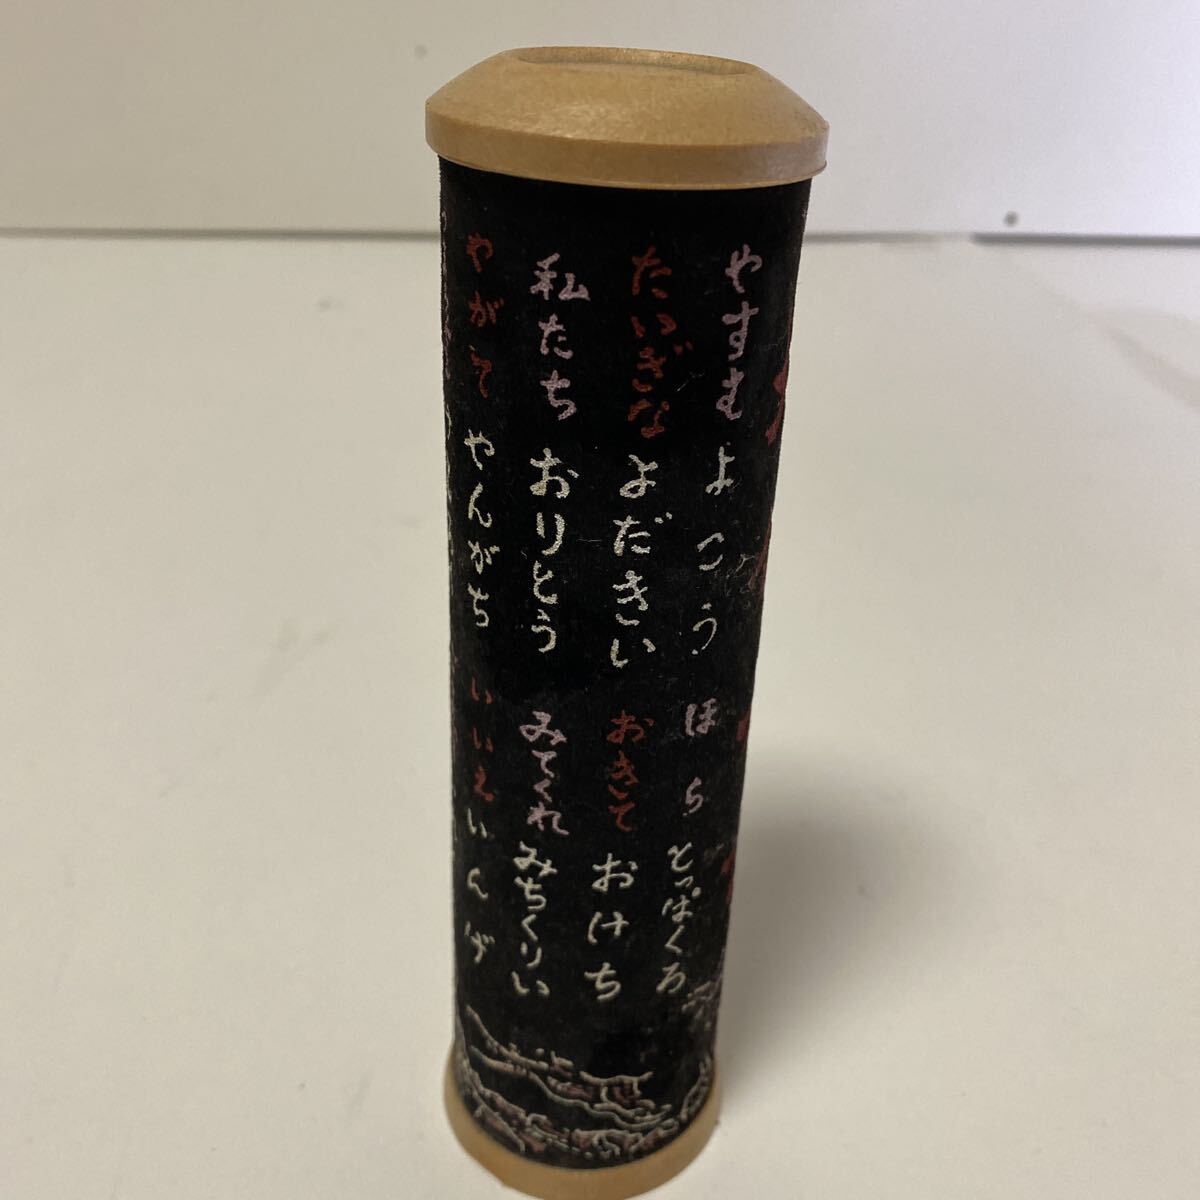 やすむ よこう ほら とっぽくろ
たいぎな よだきい おきて おけち
私たち おりとう みてくれ みちくりい
やがて やんがち いいえ いんげ